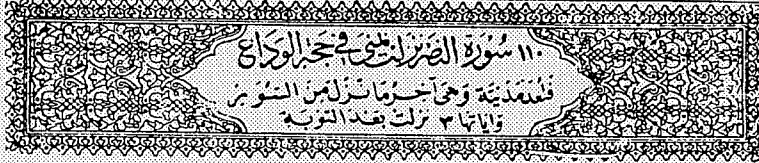 ١١٠ سُورَة النَّصْر نزلت بمنى في حجة الوداع
فتعد مَدَنيَّة وَهِيَ آخِرُ مَا نَزَلَ مِنَ السُّوَر
وَآيَاتهَا ٣ نَزَلَتْ بَعْدَ التَّوْبَة